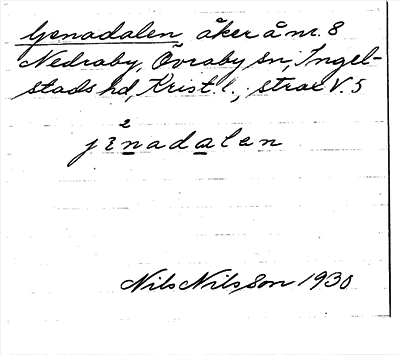 Genadalen åker å nr. 8
Nedraby, Övraby sn, Ingel-
stads hd, Krist. l., strax V. 5
2
jɛnadalen
Nils Nilsson 1930